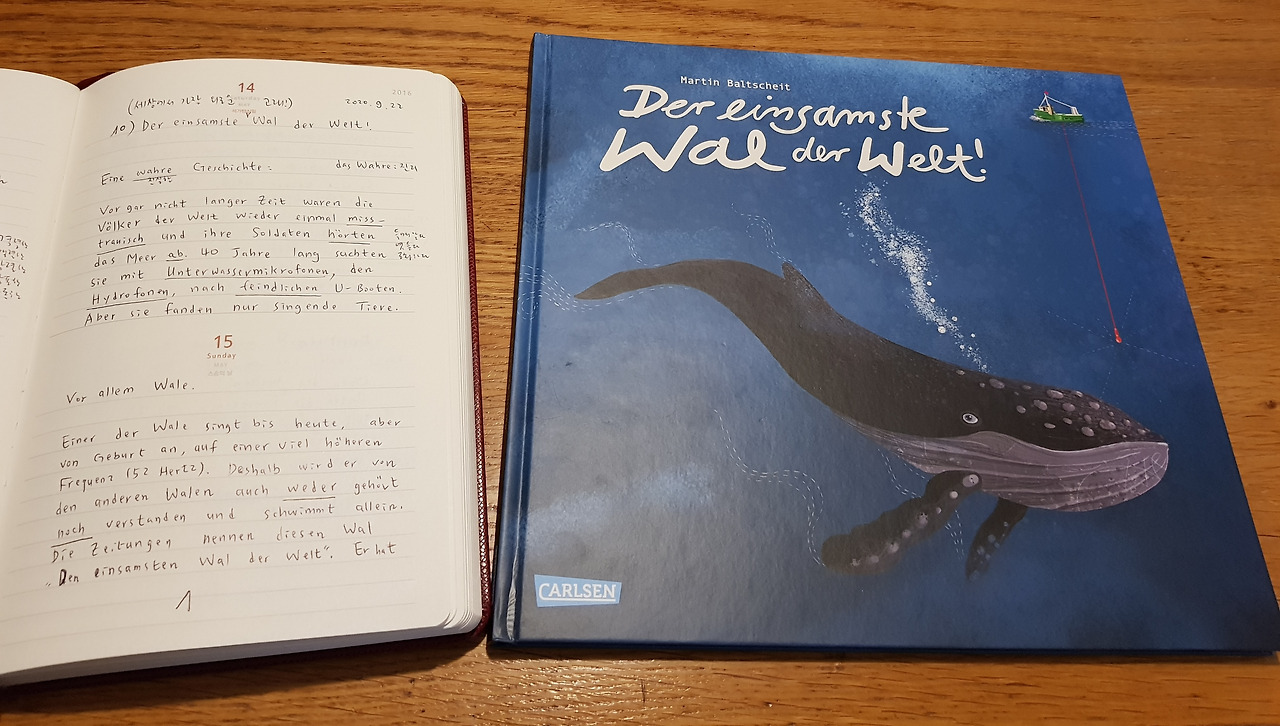 14
2016
(세상에서 가장 외로운 고래!)
2020. 9. 22
10) Der einsamste Wal der Welt!
Eine wahre Geschichte: das Wahre: 진리
진실한
Vor gar nicht langer Zeit waren die
Völker der Welt wieder einmal miss-
trauisch und ihre Soldaten hörten
das Meer ab. 40 Jahre lang suchten
sie mit Unterwassermikrofonen, den
Hydrofonen, nach feindlichen U-Booten.
Aber sie fanden nur singende Tiere.
15
Sunday
Vor allem Wale.
Einer der Wale singt bis heute, aber
von Geburt an, auf einer viel höheren
Frequenz (52 Hertz). Deshalb wird er von
den anderen Walen auch weder gehört
noch verstanden und schwimmt allein.
Die Zeitungen nennen diesen Wal
„Den einsamsten Wal der Welt". Er hat
1
Martin Baltscheit
Der einsamste
Wal der Welt!
CARLSEN